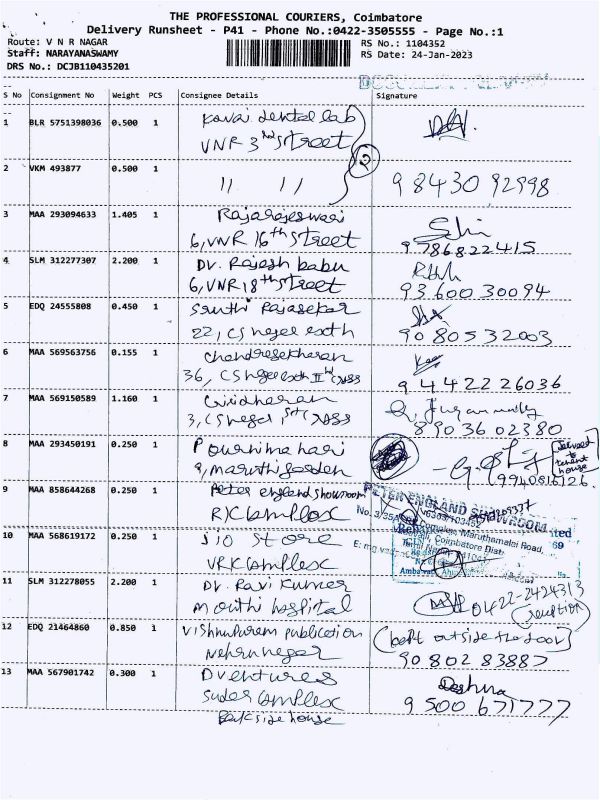 THE PROFESSIONAL COURIERS, Coimbatore
Delivery Runsheet - P41 - Phone No.:0422-3505555 - Page No.:1
Route: V N R NAGAR RS No.: 1104352
Staff: NARAYANASWAMY RS Date: 24-Jan-2023
DRS No.: DCJB110435201
S No Consignment No Weight PCS Consignee Details Signature
1 BLR 5751398036 0.500 1 Kovai dental lab
VNR 3rd Street
2
2 VKM 493877 0.500 1 11 11 98430 92998
3 MAA 293094633 1.405 1 Rajarajeswari
6, VNR 16th Street 9786822415
4 SLM 312277307 2.200 1 Dr. Rajesh babu
6, VNR 18th Street 93600 30094
5 EDQ 24555808 0.450 1 Rajasekar
22, CS 90805 32003
6 MAA 569563756 0.155 1 Chandrasekharan
36, CS 94422 26036
7 MAA 569150589 1.160 1 Giridharan
3, CS 89036 02380
8 MAA 293450191 0.250 1 Pournima hari
9, maruthi garden 9940616126
9 MAA 858644268 0.250 1 Peter england showroom
RK Complex
PETER ENGLAND SHOWROOM
Maruthamalai Road,
Coimbatore Dist.
10 MAA 568619172 0.250 1 Jio Store
VRK Complex
11 SLM 312278055 2.200 1 Dr. Ravi Kumar
hospital 0422-2424313
12 EDQ 21464860 0.850 1 Vishnupuram publication (kept outside the door)
Nehru nagar 90802 83887
13 MAA 567901742 0.300 1 Dventures
Complex 9500 671777
Backside house